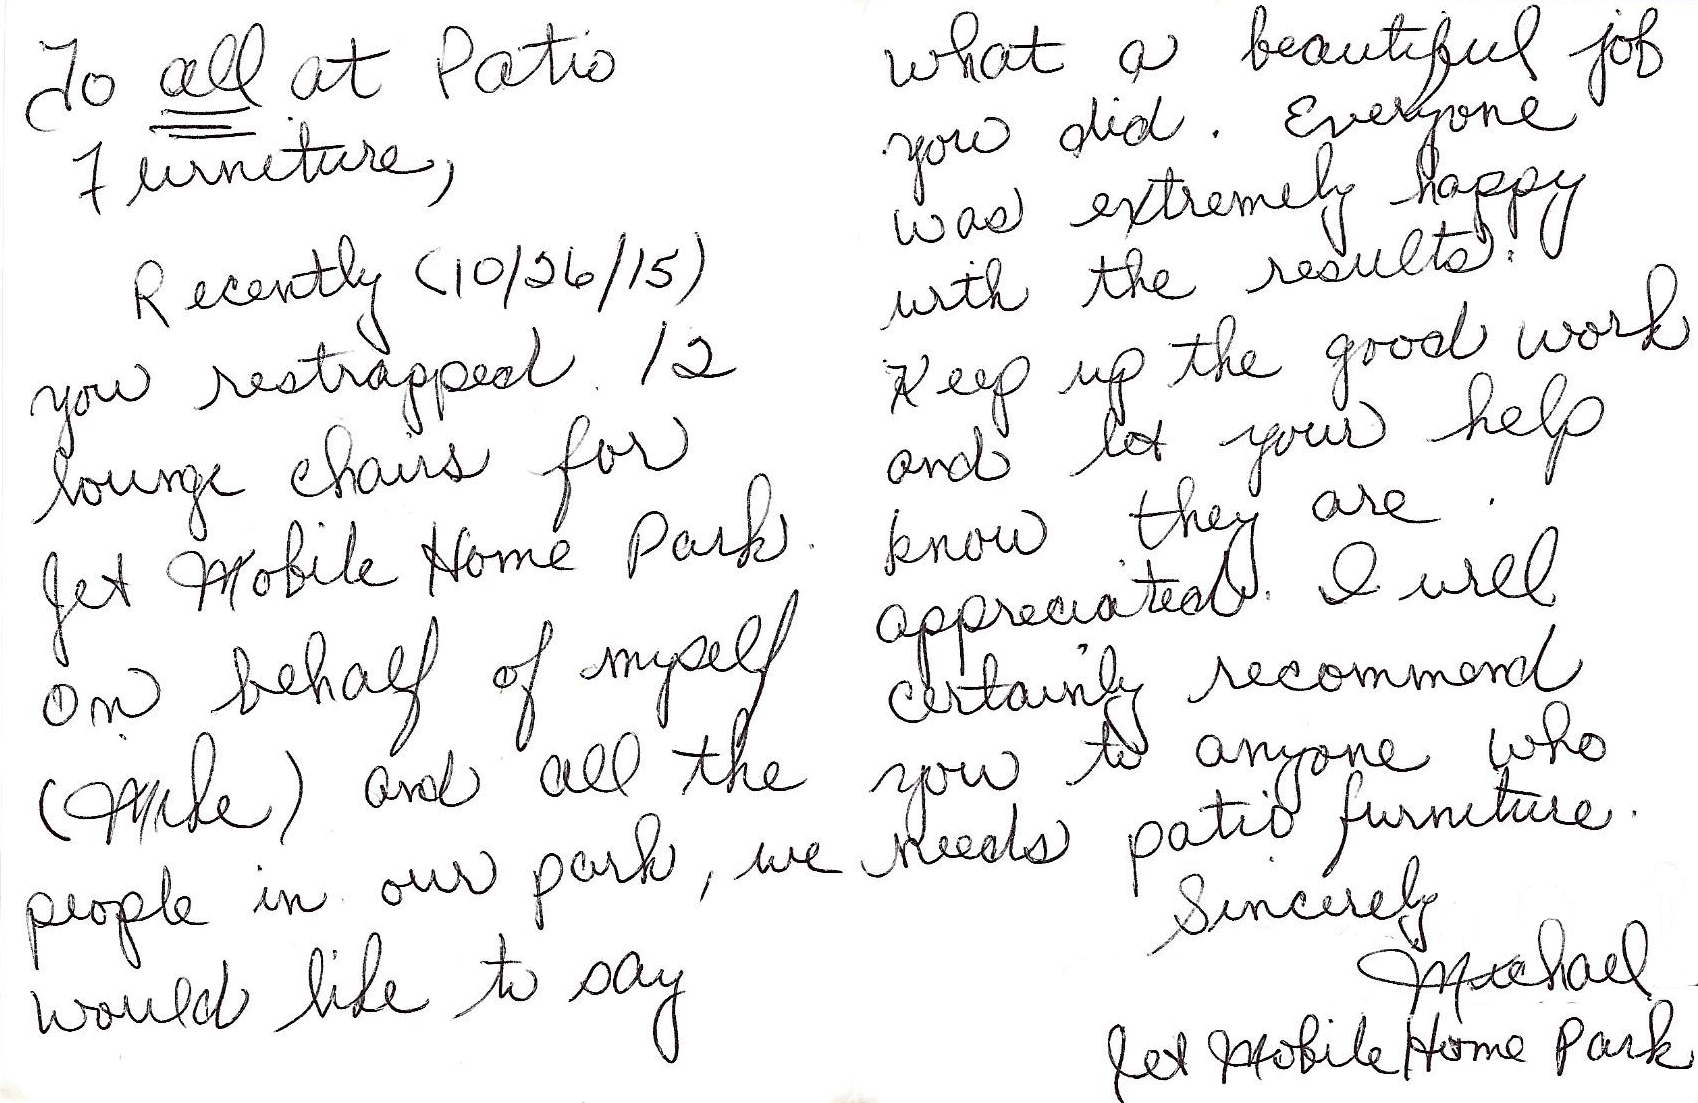 To all at Patio
Furniture,
Recently (10/26/15)
you restrapped 12
lounge chairs for
Jet Mobile Home Park.
On behalf of myself
(Mike) and all the
people in our park, we
would like to say
what a beautiful job
you did. Everyone
was extremely happy
with the results.
Keep up the good work
and let your help
know they are
appreciated. I will
certainly recommend
you to anyone who
needs patio furniture.
Sincerely
Michael
Jet Mobile Home Park